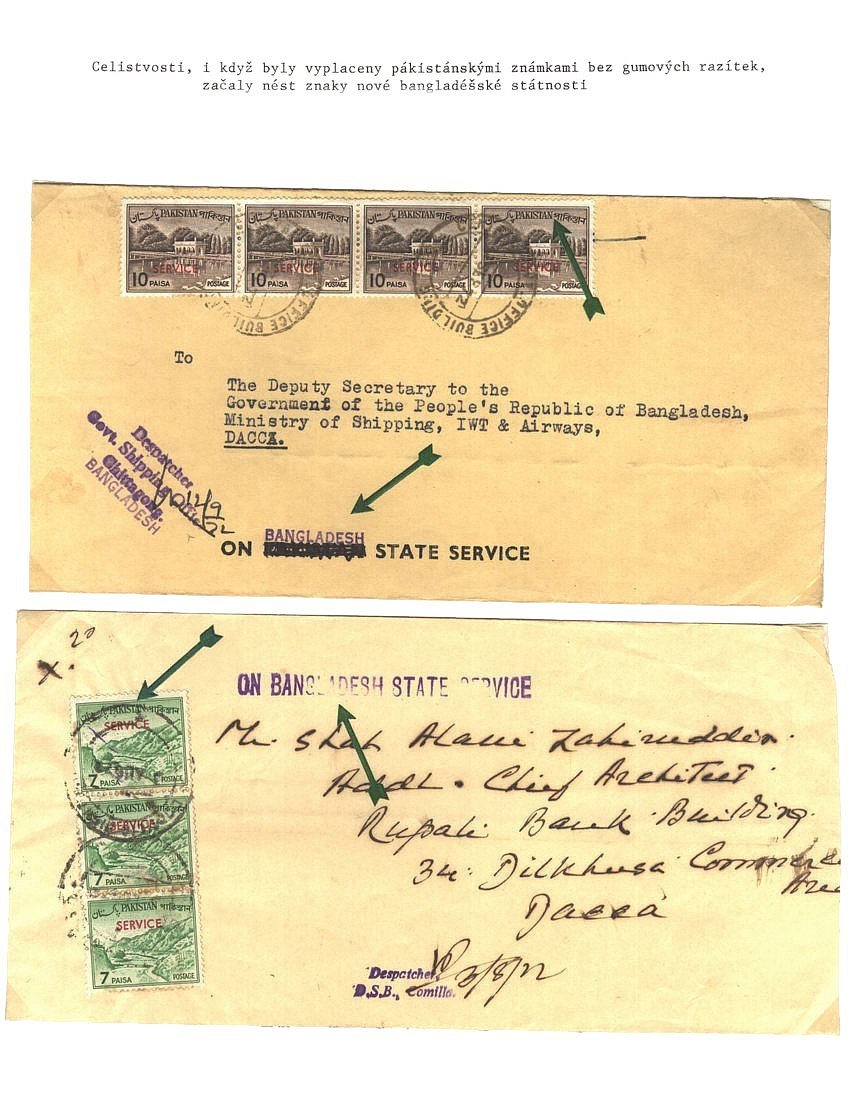 Celistvosti, i když byly vyplaceny pákistánskými známkami bez gumových razítek,
začaly nést znaky nové bangladéšské státnosti
پاکستان PAKISTAN পাকিস্তান پاکستان PAKISTAN পাকিস্তান پاکستان PAKISTAN পাকিস্তান پاکستان PAKISTAN পাকিস্তান
SERVICE SERVICE SERVICE SERVICE
10 PAISA POSTAGE 10 PAISA POSTAGE 10 PAISA POSTAGE 10 PAISA POSTAGE
OFFICE BUILDING OFFICE BUILDING
To
The Deputy Secretary to the
Government of the People's Republic of Bangladesh,
Ministry of Shipping, IWT & Airways,
DACCA.
Despatcher
Govt. Shipping Office
Chittagong.
BANGLADESH
BANGLADESH
ON STATE SERVICE
x. 20
ON BANGLADESH STATE SERVICE
پاکستان PAKISTAN পাকিস্তান
SERVICE
7 PAISA POSTAGE
AUG
پاکستان PAKISTAN পাকিস্তান
SERVICE
7 PAISA POSTAGE
پاکستان PAKISTAN পাকিস্তান
SERVICE
7 PAISA POSTAGE
Mr. Shah Alam Zahiruddin.
Addl. Chief Architect
Rupali Bank Building.
34. Dilkhusa Commerce
Area
Dacca
Despatcher,
D.S.B., Comilla.
3/8/72